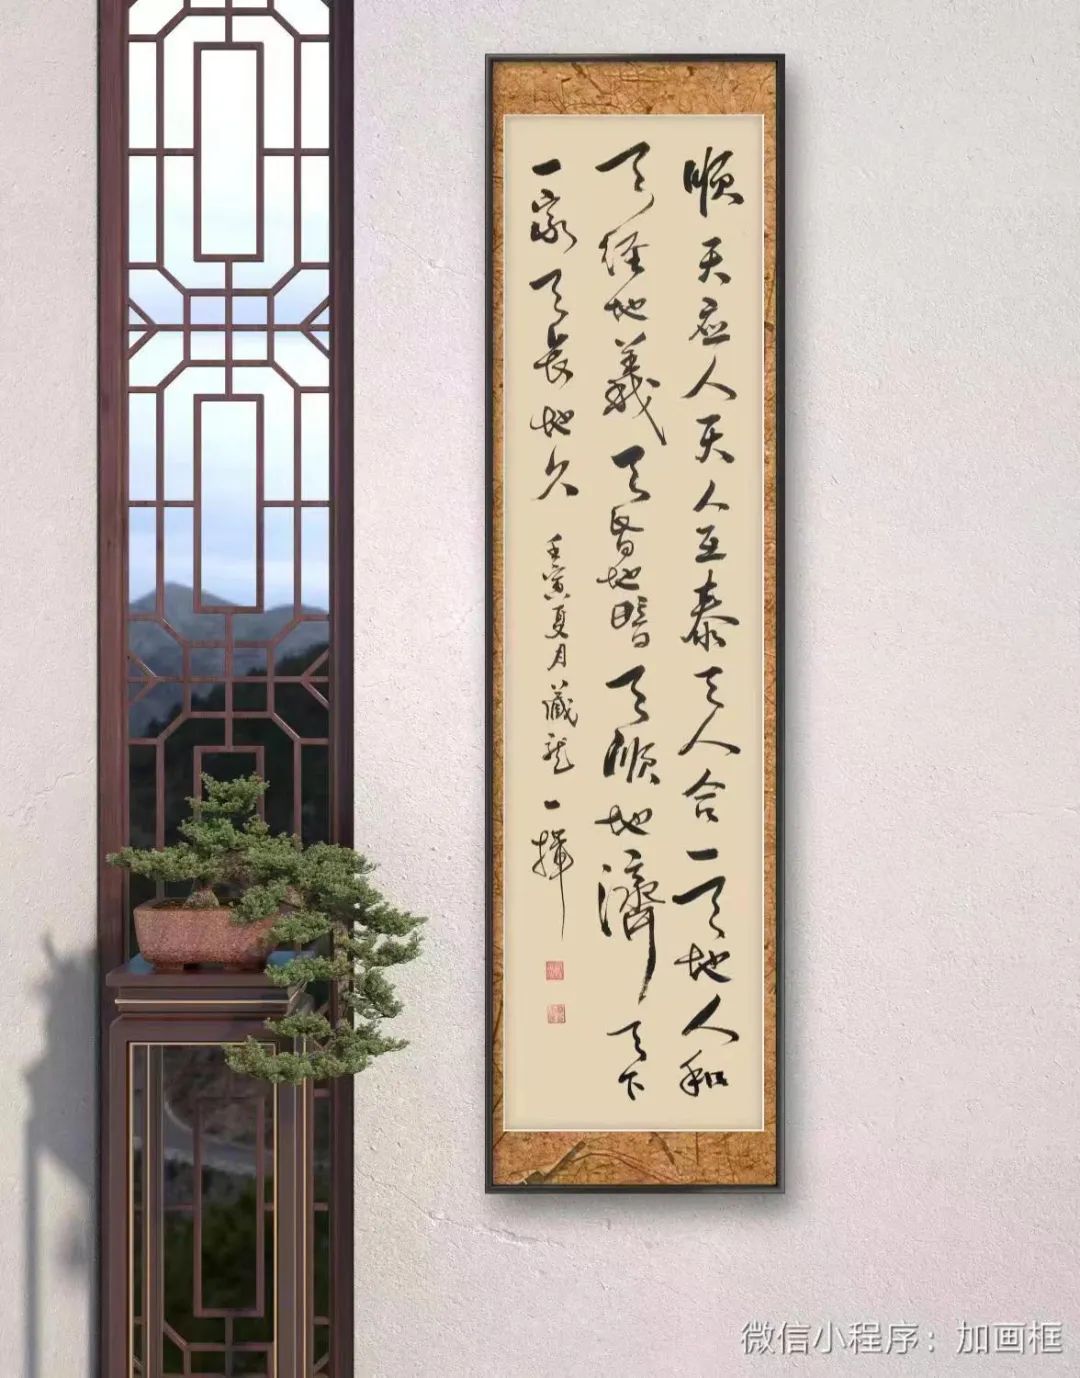 顺天应人天人互泰天人合一天地人和
天经地义天昏地暗天顺地济天下
一家天长地久
壬寅夏月藏龙一挥
微信小程序：加画框